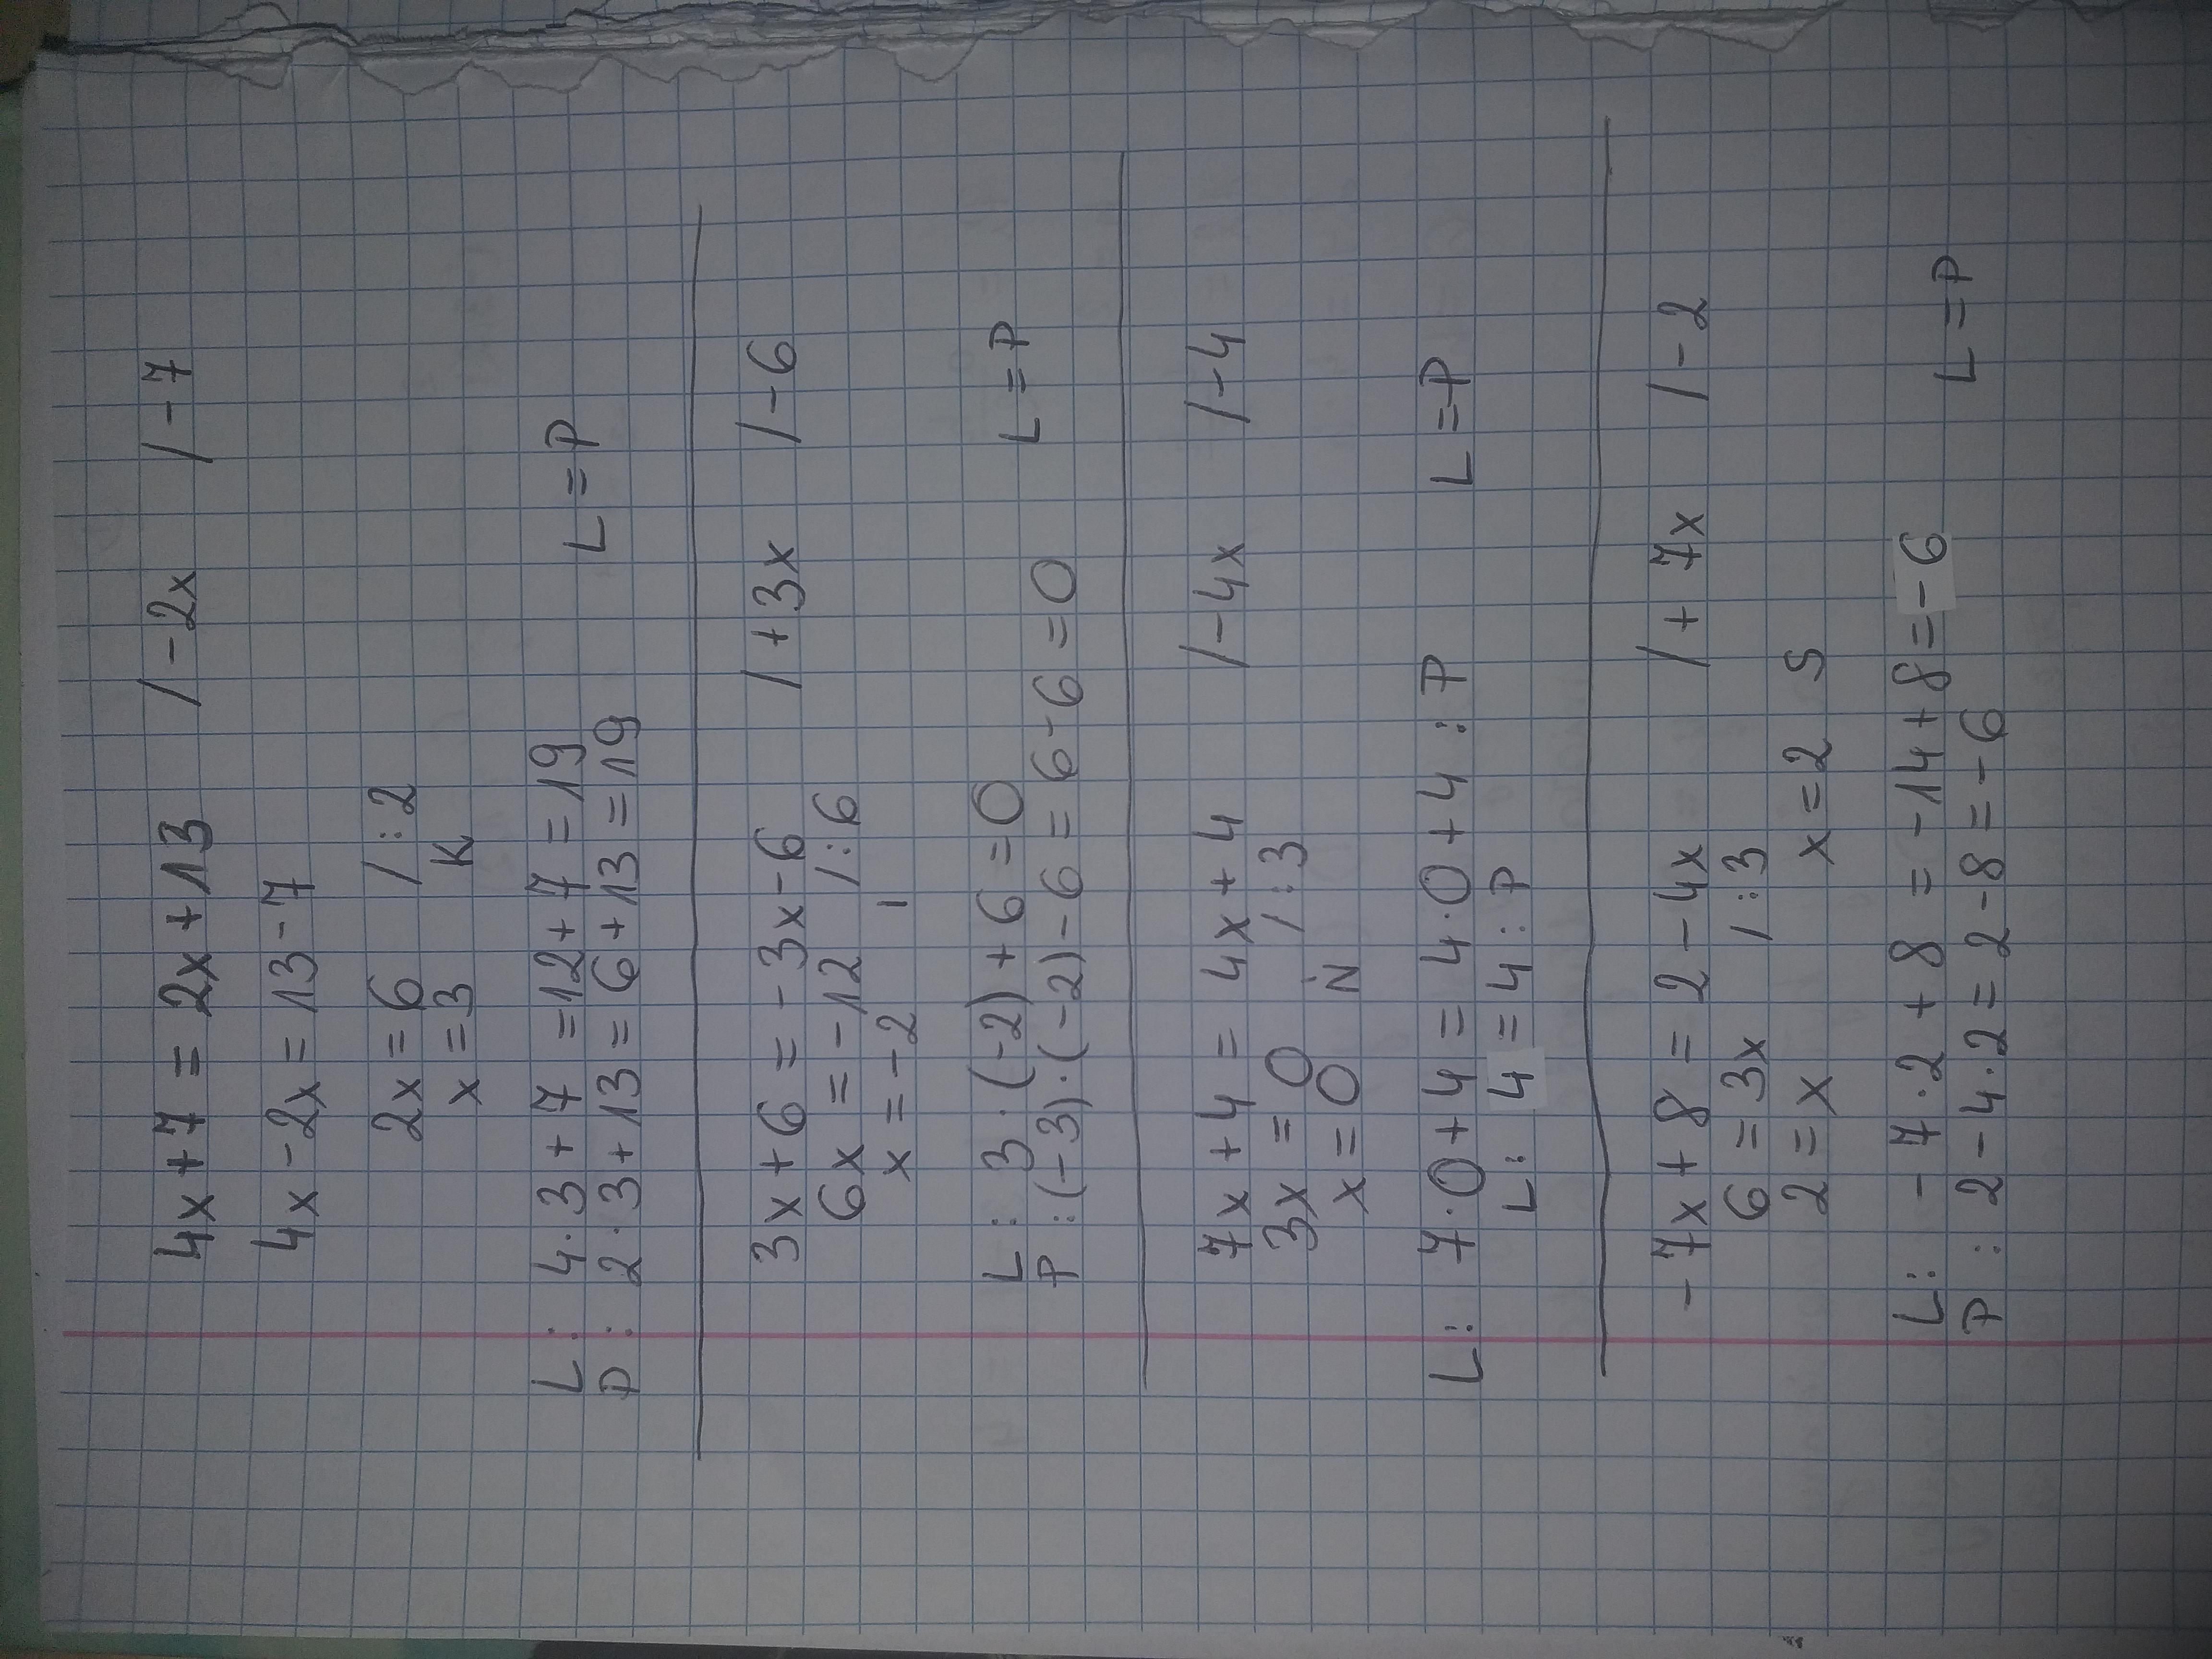 4x + 7 = 2x + 13 / - 2x / - 7
4x - 2x = 13 - 7
2x = 6 / : 2
x = 3 K
L : 4 · 3 + 7 = 12 + 7 = 19
P : 2 · 3 + 13 = 6 + 13 = 19 L = P
3x + 6 = - 3x - 6 / + 3x / - 6
6x = - 12 / : 6
x = - 2 I
L : 3 · (-2) + 6 = 0
P : (-3) · (-2) - 6 = 6 - 6 = 0 L = P
7x + 4 = 4x + 4 / - 4x / - 4
3x = 0 / : 3
x = 0 Ṅ
L : 7 · 0 + 4 = 4 · 0 + 4 : P L = P
L : 4 = 4 : P
- 7x + 8 = 2 - 4x / + 7x / - 2
6 = 3x / : 3
2 = x x = 2 S
L : - 7 · 2 + 8 = - 14 + 8 = - 6
P : 2 - 4 · 2 = 2 - 8 = - 6 L = P